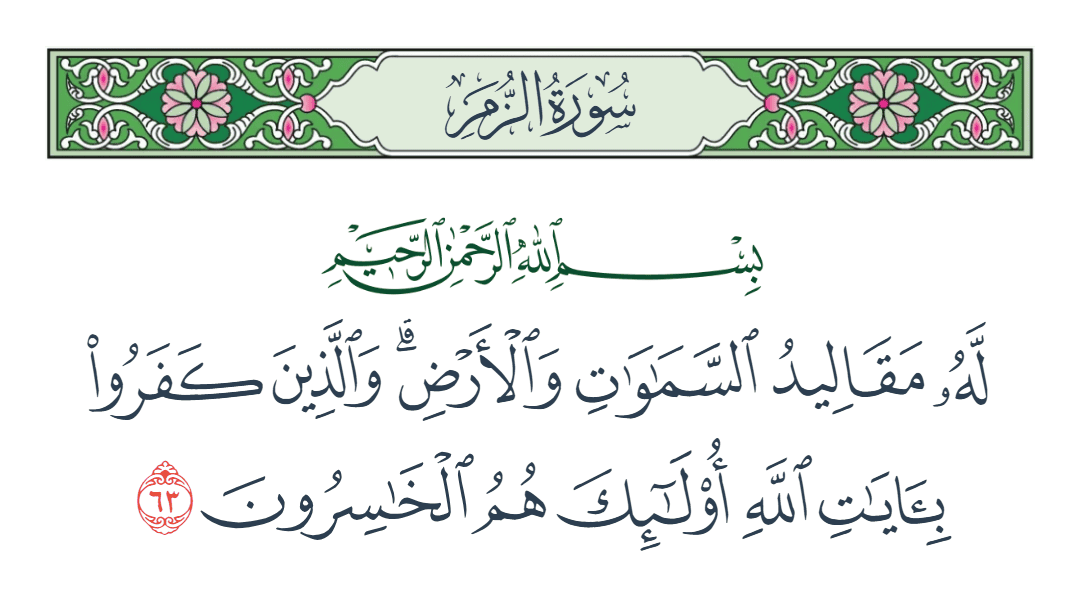 سُورَةُ الزُّمَرِ
بِسْمِ ٱللَّهِ ٱلرَّحْمَٰنِ ٱلرَّحِيمِ
لَّهُۥ مَقَالِيدُ ٱلسَّمَٰوَٰتِ وَٱلْأَرْضِ ۗ وَٱلَّذِينَ كَفَرُوا۟
بِـَٔايَٰتِ ٱللَّهِ أُو۟لَٰٓئِكَ هُمُ ٱلْخَٰسِرُونَ ٦٣